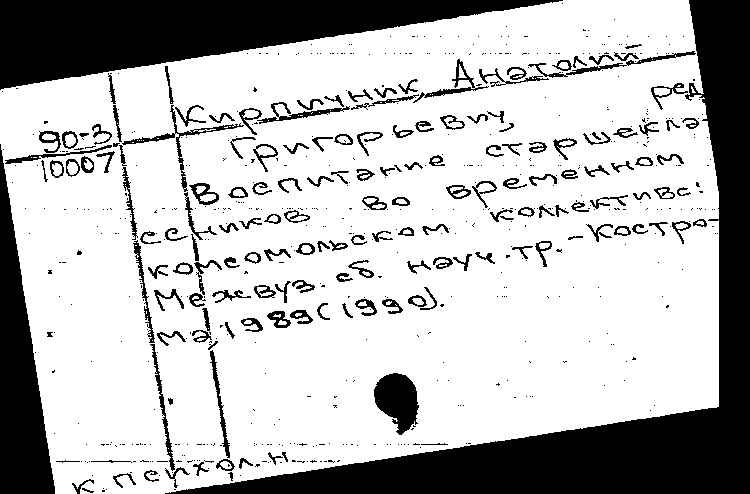 Кирпичник, Анатолий
90-3
10007
Григорьевич, ред.
Воспитание старшекла-
ссников во временном
комсомольском коллективе:
Межвуз. сб. науч. тр. - Костро-
ма, 1989 (1990).
к. психол. н.